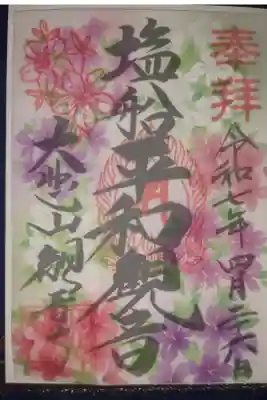 奉拝
令和七年四月二六日
塩船平和観音
大悲山観音寺